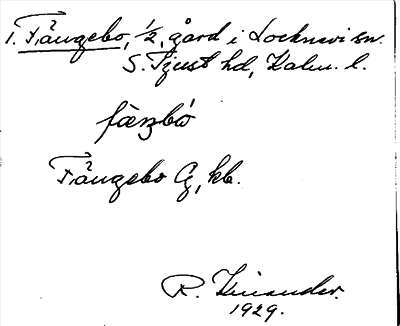 1. Fångebo, 1/2, gård i Locknevi sn.
S. Tjust hd, Kalm. l.
Fångebo G, kb.
R. Kinander.
1929.